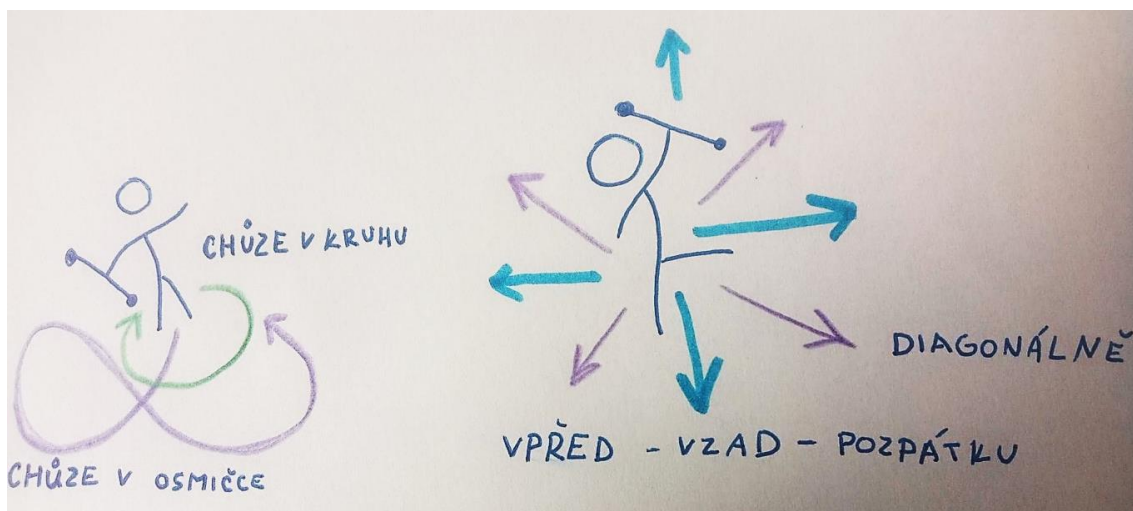 CHŮZE V KRUHU
CHŮZE V OSMIČCE
DIAGONÁLNĚ
VPŘED - VZAD - POZPÁTKU